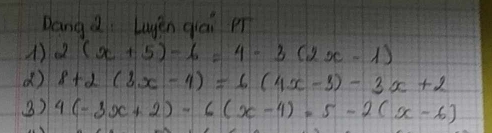 Dạng 2: Luyện giải PT
1) 2 (x + 5) - 6 = 4 - 3 (2x - 1)
2) 8 + 2 (3x - 4) = 6 (4x - 3) - 3x + 2
3) 4 (-3x + 2) - 6 (x - 4) = 5 - 2 (x - 6)